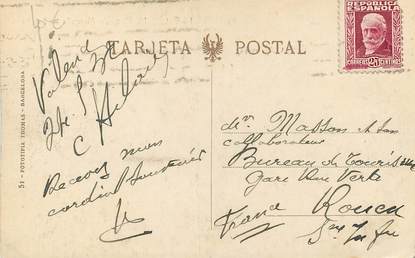 TARJETA POSTAL
REPÚBLICA
ESPAÑOLA
CORREOS 25 CENTIMOS
51 - FOTOTIPIA THOMAS - BARCELONA
C Hilario
Recevez mon
cordial souvenir
Mr Masson
collaborateur
Bureau de Tourisme
Gare Rue Verte
Rouen
France